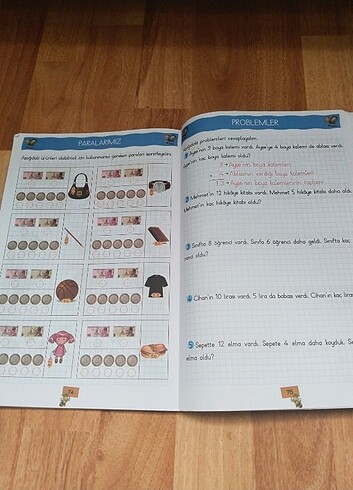 PARALARIMIZ
Aşağıdaki ürünleri alabilmek için kullanmamız gereken paraları işaretleyelim.
74
PROBLEMLER
Aşağıdaki problemleri cevaplayalım.
1 Ayşe'nin 9 boya kalemi vardı. Ayşe'ye 4 boya kalemi de ablası verdi.
Ayşe'nin kaç boya kalemi oldu?
9 → Ayşe'nin boya kalemleri
+ 4 → Ablasının verdiği boya kalemleri
13 → Ayşe'nin boya kalemlerinin toplamı
2 Mehmet'in 12 hikâye kitabı vardı. Mehmet 5 hikâye kitabı daha
Mehmet'in kaç hikâye kitabı oldu?
3 Sınıfta 8 öğrenci vardı. Sınıfa 6 öğrenci daha geldi. Sınıfta kaç
öğrenci oldu?
4 Cihan'ın 10 lirası vardı. 5 lira da babası verdi. Cihan'ın kaç
5 Sepette 12 elma vardı. Sepete 4 elma daha koyduk.
elma oldu?
75